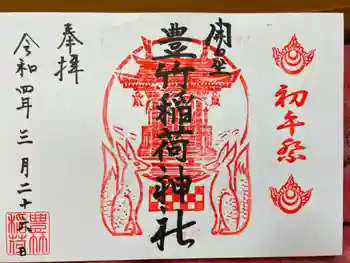 初午祭
開口坐
豊竹稲荷神社
奉拝
令和四年三月二十六日
豊竹
稲荷